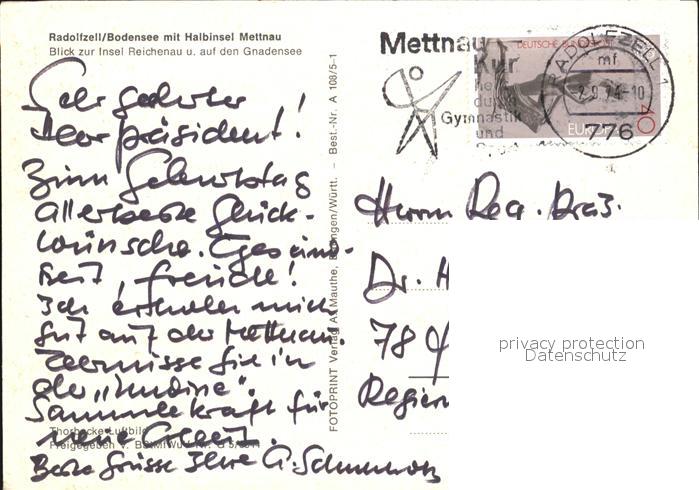 Radolfzell/Bodensee mit Halbinsel Mettnau
Blick zur Insel Reichenau u. auf den Gnadensee
Sehr geehrter
Herr Präsident!
Zum Geburtstag
allerbeste Glück-
wünsche. Gesund-
heit, Freude!
Ich erhole mich
gut auf der Mettnau.
Vermisse Sie in
der „Undine“.
Sammle Kraft für
neue Arbeit.
Beste Grüsse Ihre G.
Thorbecke-Luftbild
Freigegeben v.
FOTOPRINT Verlag A. Mauthe, /Württ. – Best.-Nr. A 108/5-1
Mettnau
Kur
durch
Gymnastik
und
DEUTSCHE BUNDESPOST
EUROPA
40
RADOLFZELL 1
mf
2.9.74-10
776
Herrn Reg. Präs.
Dr. H
78
Regier
privacy protection
Datenschutz